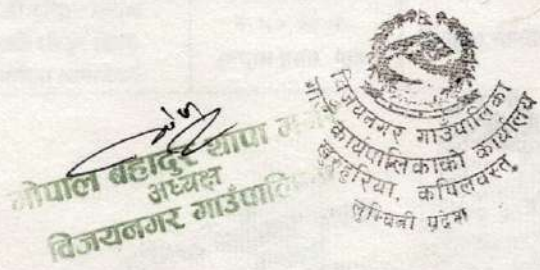 गोपाल बहादुर थापा
अध्यक्ष
विजयनगर
विजयनगर गाउँपालिका
गाउँ कार्यपालिकाको कार्यालय
कपिलवस्तु
लुम्बिनी प्रदेश